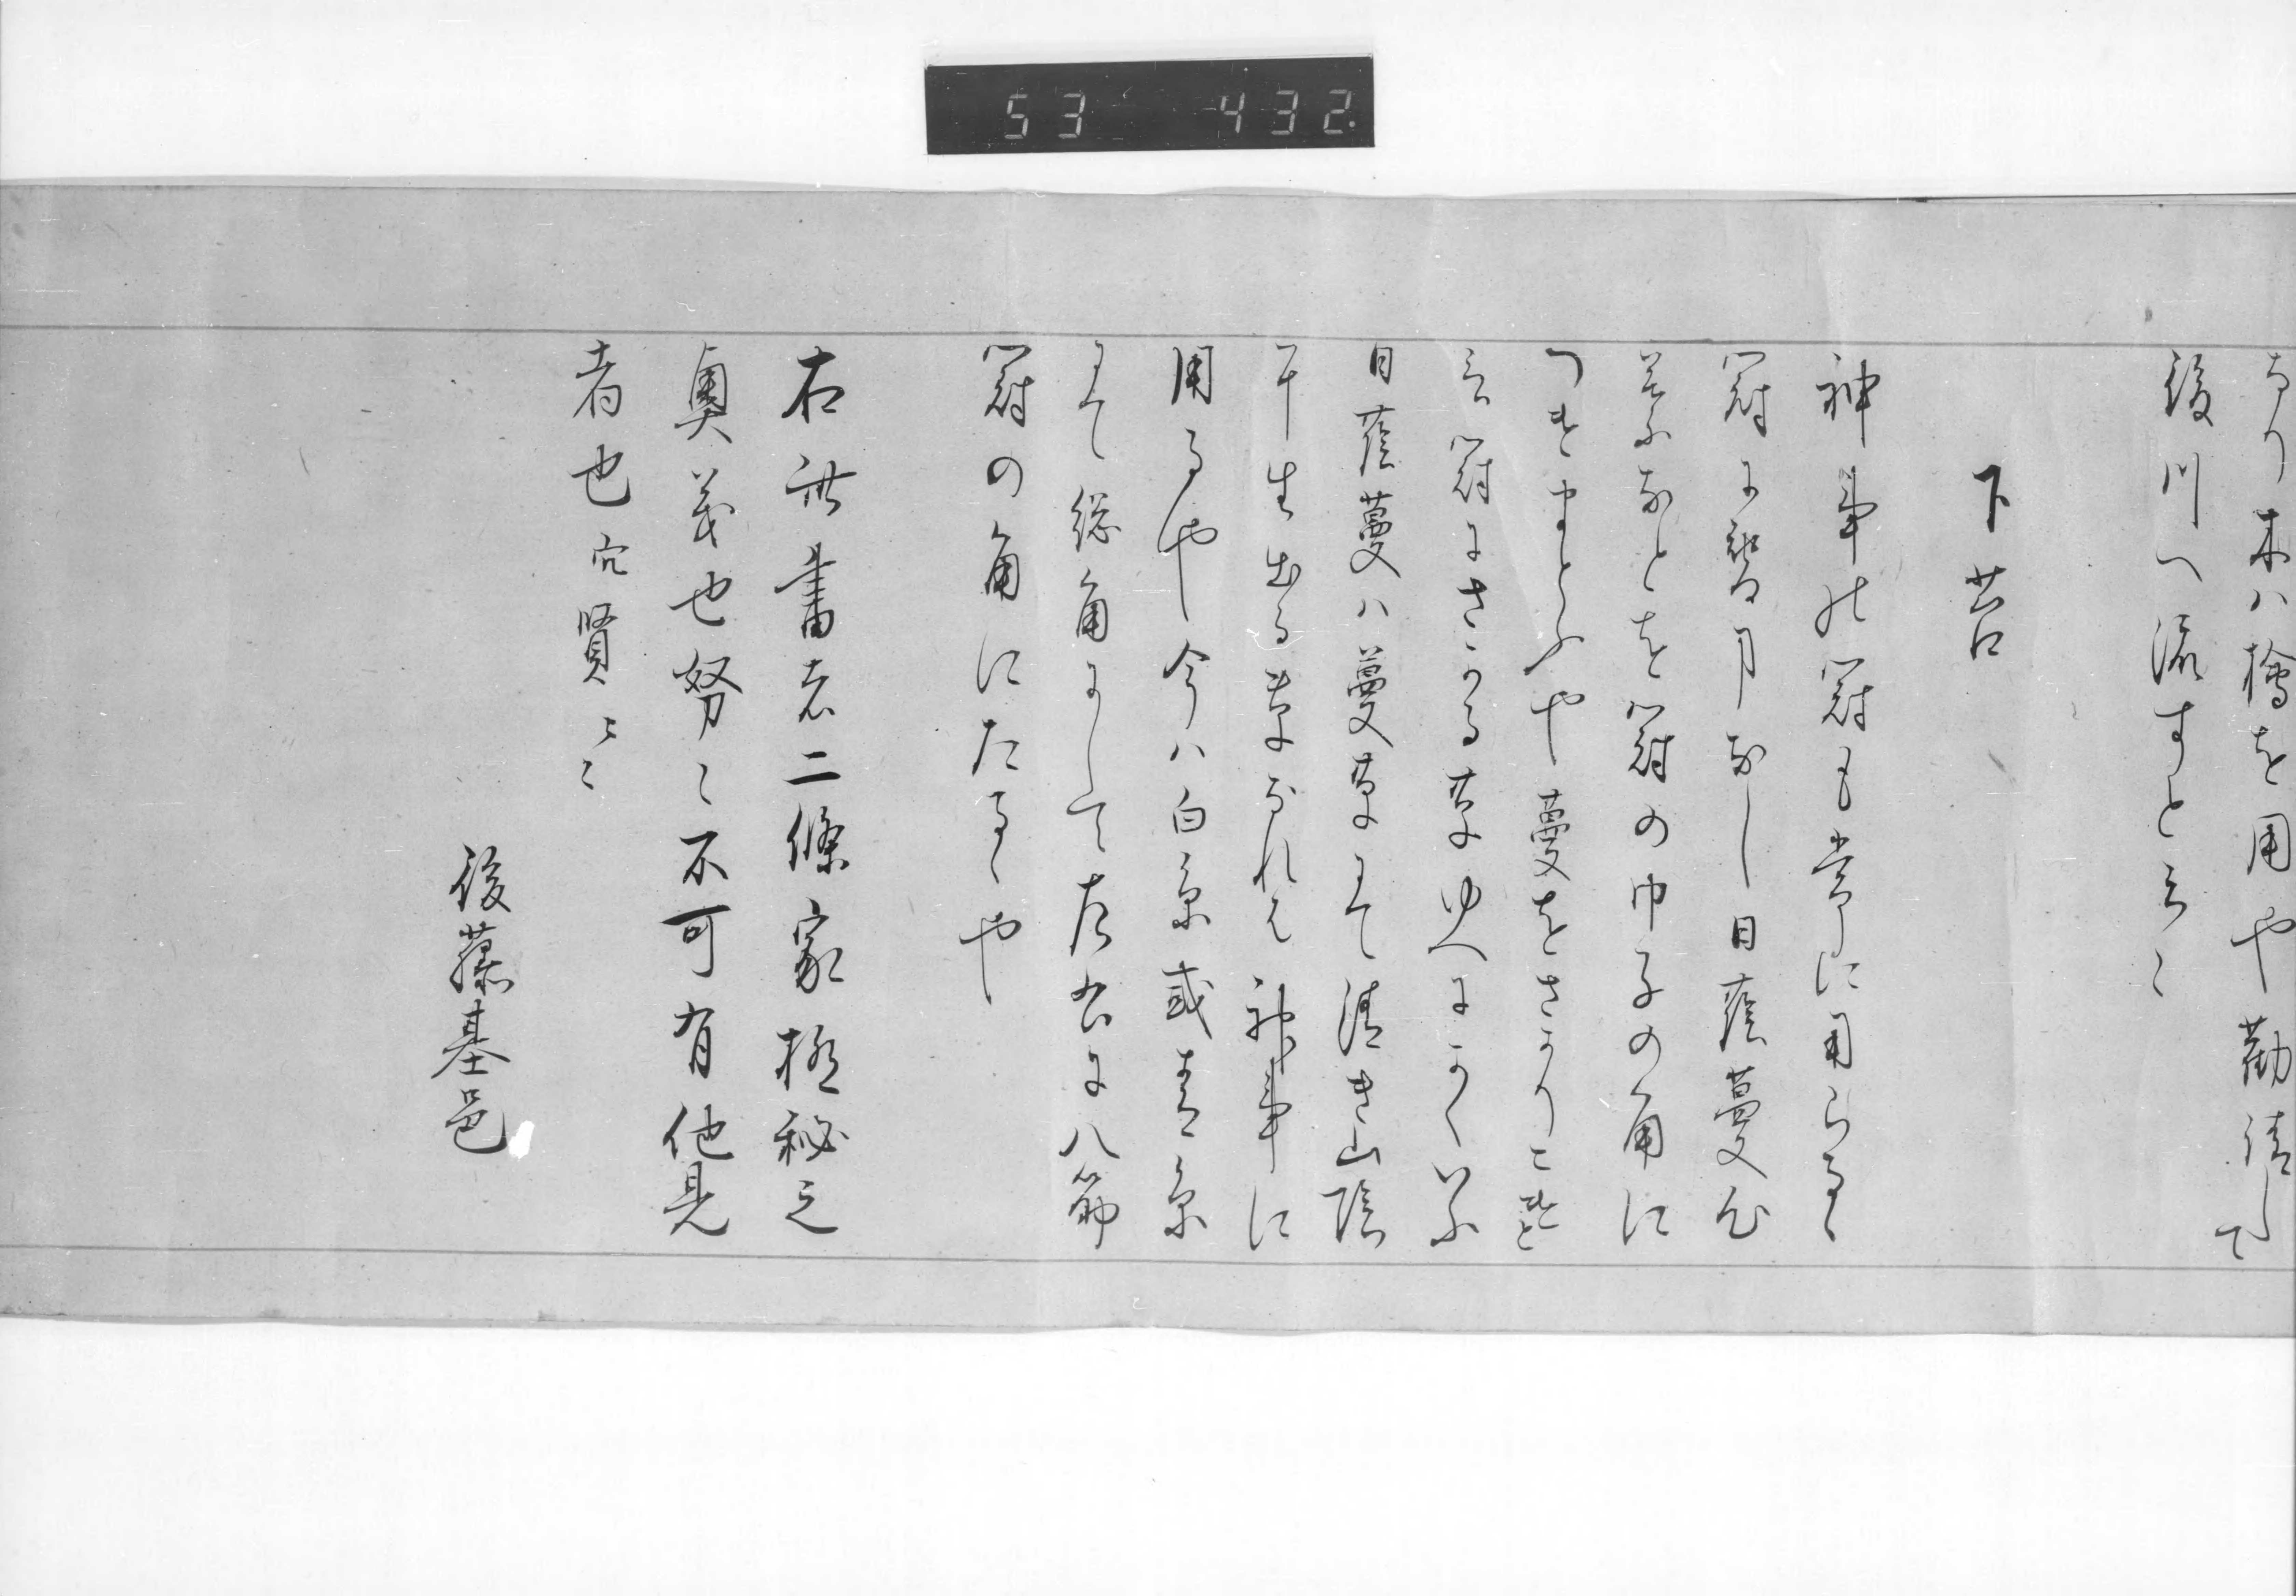 53 432
なり木ハ檜を用や勧請して
後川へ流すと云々
下苔
神事の冠も常に用らるゝ
冠に替る事なし日蔭蔓心
なとを冠の巾子の角に
つきまとふや蔓をさかりこけと
云冠にさかる草ゆへにかくいふ
日蔭蔓ハ蔓草にて清き山陰
干生出る草なれは神事に
用るや今ハ白糸或青糸
にて総角にして左右に八筋
冠の角にたるゝや
右此書者二條家極秘之
奥義也努々不可有他見
者也穴賢々々
後藤基邑